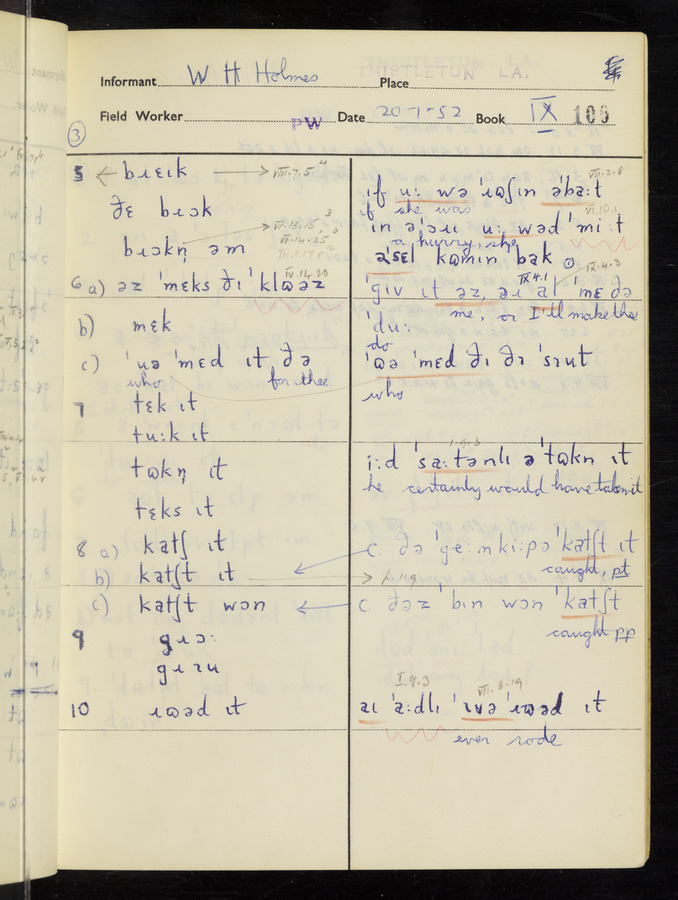 Informant W H Holmes Place
Field Worker PW Date 20-1-52 Book IX 106
③
5 ← bɹɛɪk → VII.7.5
ðɛ bɹɔk
bɹɔkn̩ əm → VI.13.15,3
VI.14.25,3
6 a) əz ˈmɛks ðɪ ˈklɷəz IV.14.20
b) mɛk
c) ˈuə ˈmɛd ɪt ðə
who for thee
7 tɛk ɪt
tu:k ɪt
tɷkn̩ ɪt
tɛks ɪt
8 a) katʃ ɪt
b) katʃt ɪt → 
c) katʃt wɔn
9 gɪɔ:
gɪɹu
10 ɹɷəd ɪt
ɪf u: wə ɹɷʃɪn əba:t VII.2.8
if she was VI.10.1
a hurry, she
əˈsɛl kɷmɪn ˈbak ⊙ IX.4.3
ˈgɪv ɪt əz, IX.4.1 ˈmɛ ðə
me, or I'll make thee
ˈdu:
do
ˈɷə ˈmɛd ðɪ ðɪ ˈsɪut
who
i:d ˈsa:tənlɪ ə ˈtɷkn ɪt
he certainly would have taken it
c. ðə ˈge:mki:pə ˈkatʃt ɪt
caught, pt
c. ðəz ˈbɪn wɔn ˈkatʃt
caught pp
I.9.3 VII.8.19
aɪ ˈa:dlɪ ˈɪvə ˈɹɷəd ɪt
ever rode